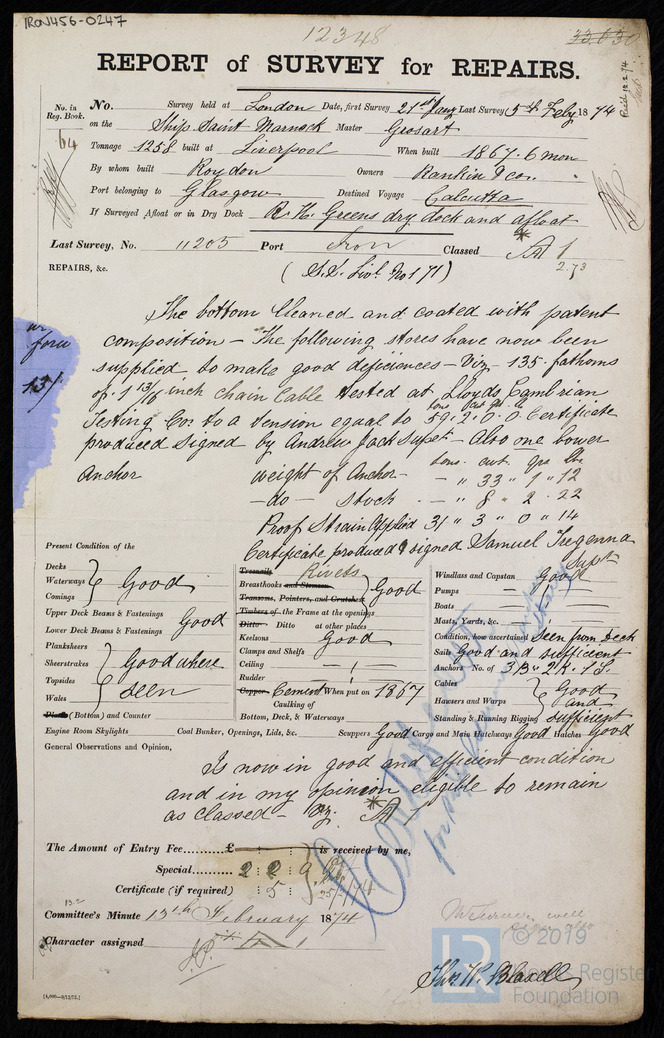 IRON456-0247
12348
REPORT of SURVEY for REPAIRS.
No. in Reg. Book.
64
No. Survey held at London Date, first Survey 21st Jany Last Survey 5th Feby 1874
on the Ship Saint Marnock Master Grosart
Tonnage 1258 built at Liverpool When built 1867. 6 mon
By whom built Roydon Owners Rankin & Co.
Port belonging to Glasgow Destined Voyage Calcutta
If Surveyed Afloat or in Dry Dock R. H. Greens dry dock and afloat
Last Survey, No. 11205 Port Iron Classed A 1
2.73
REPAIRS, &c. (S.S. Livl. No 1 71)
The bottom cleaned and coated with patent
composition – The following stores have now been
supplied to make good deficiences – Viz – 135 fathoms
of 1 13/16 inch chain Cable tested at Lloyds Cambrian
Testing Co. to a tension equal to 59.2.0.0 Certificate
produced signed by Andrew Jack Supt – Also one bower
Anchor weight of Anchor – " 33 " 1 " 12
tons. cwt. qrs lbs.
– do – Stock – " 8 " 2 . 22
Proof Strain Applied 31 " 3 " 0 " 14
Certificate produced & signed Samuel Tregenna Supt
Present Condition of the
Decks
Waterways
Comings
Good
Upper Deck Beams & Fastenings
Lower Deck Beams & Fastenings
Good
Planksheers
Sheerstrakes
Topsides
Wales
Good where seen
(Bottom) and Counter
Treenails Rivets
Breasthooks and Stemson
Transoms, Pointers, and Crutches
Timbers of the Frame at the openings
Good
Ditto Ditto at other places
Keelsons Good
Clamps and Shelfs
Ceiling
Rudder
Copper Cement When put on 1867
Caulking of
Bottom, Deck, & Waterways
Windlass and Capstan Good
Pumps
Boats
Masts, Yards, &c.
Condition, how ascertained Seen from deck
Sails Good and sufficient
Anchors No. of 3 B. 2 K. 1 S.
Cables
Hawsers and Warps
Standing & Running Rigging
Good and sufficient
Engine Room Skylights Coal Bunker, Openings, Lids, &c. Scuppers Good Cargo and Main Hatchways Good Hatches Good
General Observations and Opinion,
Is now in good and efficient condition
and in my opinion eligible to remain
as classed – A 1
The Amount of Entry Fee £ : : is received by me,
Special 2 : 2 : 9
Certificate (if required) : 5 :
25/2/74
13.2
Committee's Minute 13th February 1874
Character assigned A 1
Thos W. Blaxall
[4,000—9/12/72.]
LR
© 2019
Lloyd's Register
Foundation